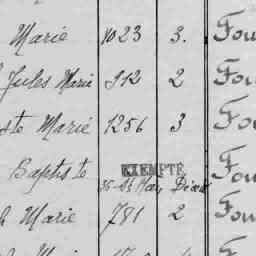 Marie 1023 3. Fou
Jules Marie 912 2 Fou
ste Marie 1256 3 Fou
Baptiste EXEMPTÉ Fou
Marie 781 2 Fou